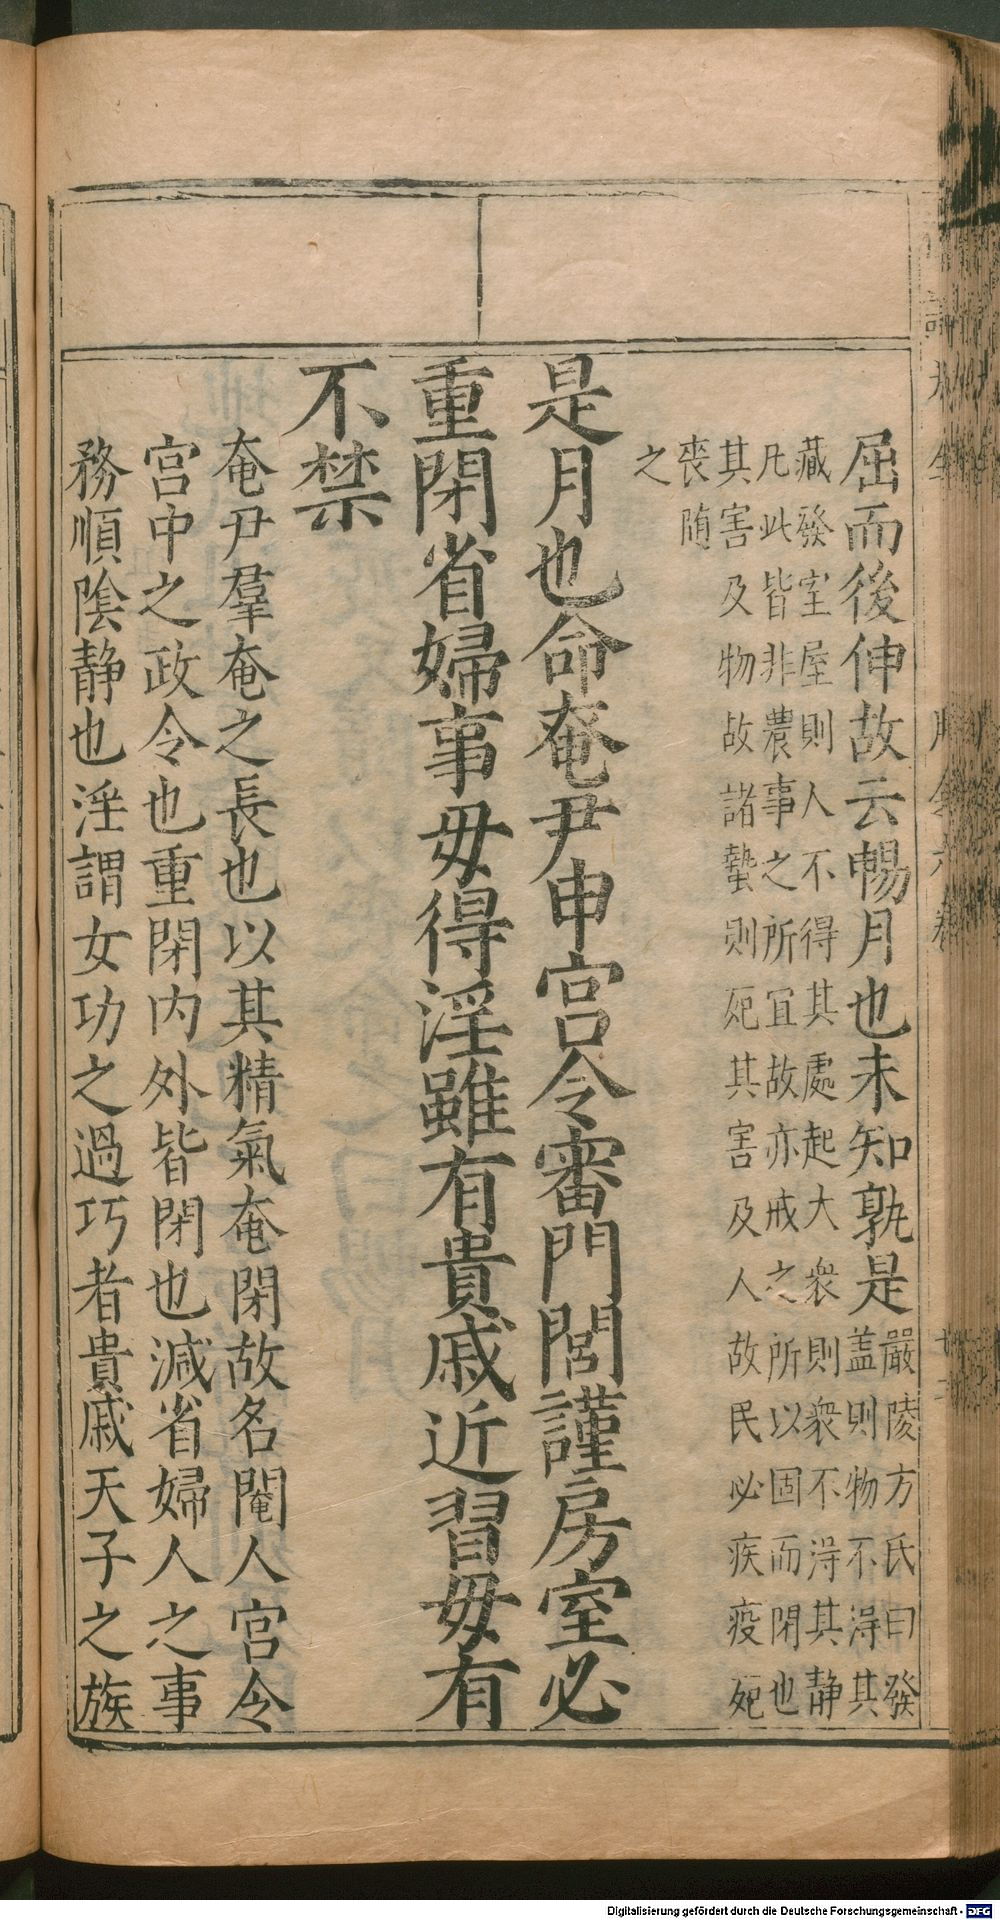 屈而後伸故云暢月也未知孰是
嚴陵方氏曰發
盖則物不得其
藏發室屋則人不得其處起大衆則衆不得其靜
凡此皆非農事之所宜故亦戒之所以固而閉也
其害及物故諸蟄則死其害及人故民必疾疫死
喪随
之
是月也命奄尹申宮令審門閭謹房室必
重閉省婦事毋得淫雖有貴戚近習毋有
不禁
奄尹羣奄之長也以其精氣奄閉故名閹人宮令
宮中之政令也重閉内外皆閉也減省婦人之事
務順陰静也淫謂女功之過巧者貴戚天子之族
Digitalisierung gefördert durch die Deutsche Forschungsgemeinschaft - DFG